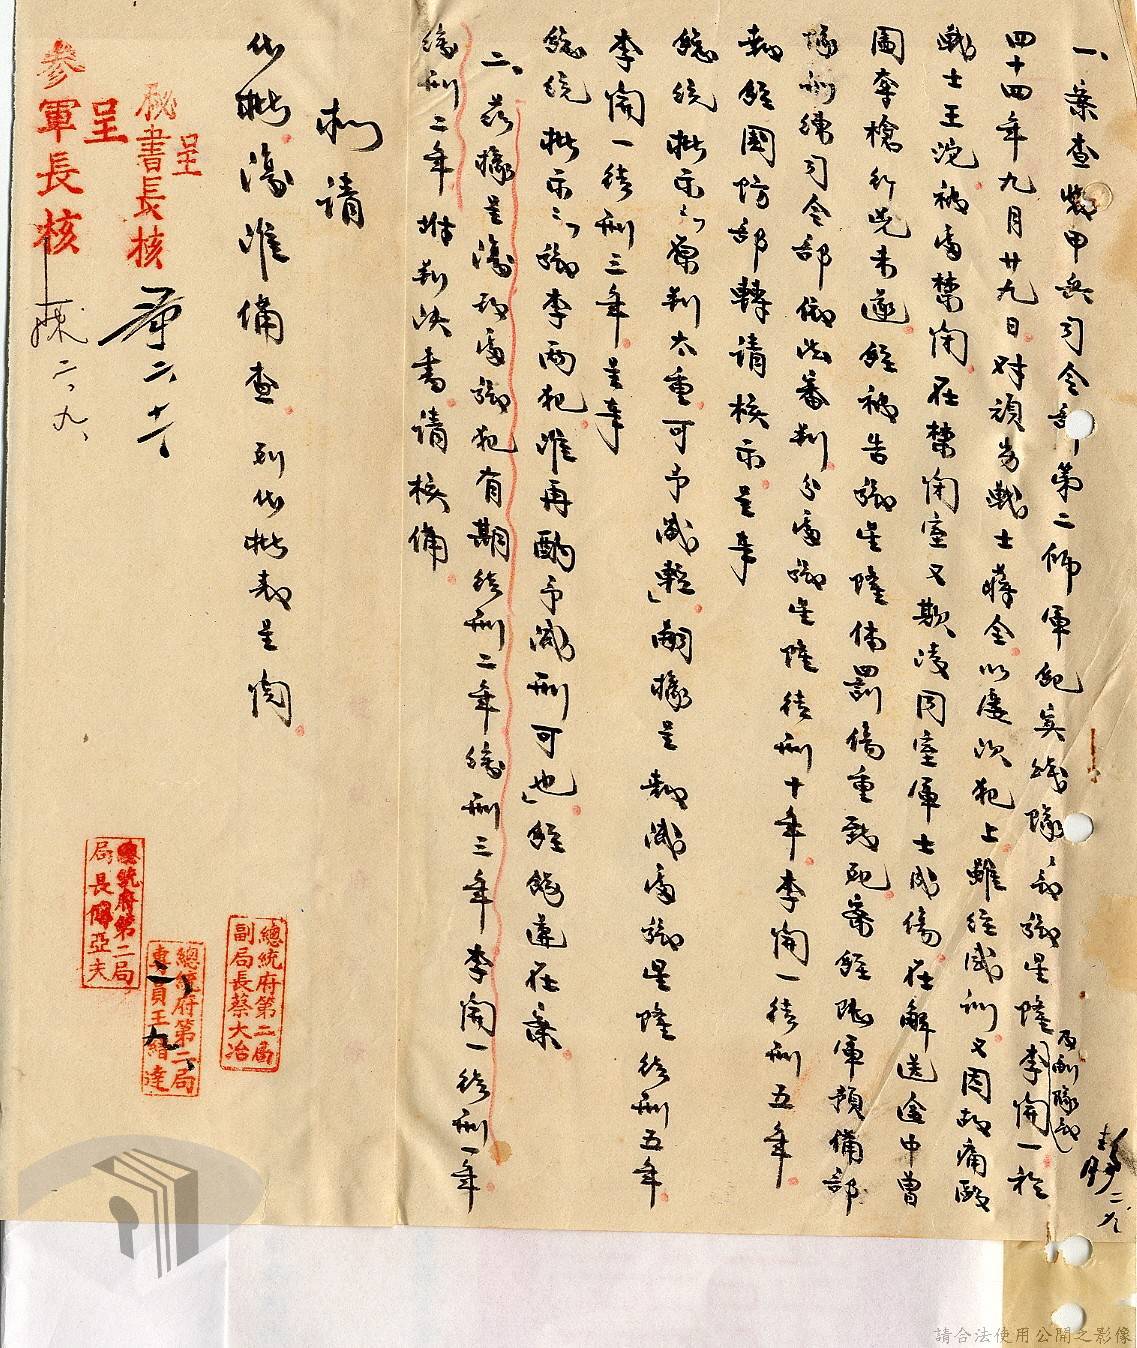 一、案查裝甲兵司令部第二師軍紀實踐隊(即副隊部)張星隆李開一於
四十四年九月廿九日對頑劣戰士蔣全以屢次犯上雖經感訓又因故痛毆
戰士王沅被處禁閉在禁閉室又欺凌同室軍士成傷在解送途中曾
圖奪槍行兇未遂經被告張星隆備罰傷重致死案經陸軍預備部
隊訓練司令部依法審判分處張星隆徒刑十年李開一徒刑五年
報經國防部轉請核示呈奉
總統批示「原判太重可予減輕」嗣據呈報減處張星隆徒刑五年
李開一徒刑三年呈奉
總統批示「張李兩犯准再酌予減刑可也」經飭遵在案
二、茲據呈復改處張犯有期徒刑二年緩刑三年李開一徒刑一年
緩刑二年附判決書請核備
擬請
代批復准備查列代批表呈閱
呈
秘書長核
呈
參軍長核
二、九、
總統府第二局副局長蔡大冶
總統府第二局專員王縉達
總統府第二局局長傅亞夫
請合法使用公開之影像